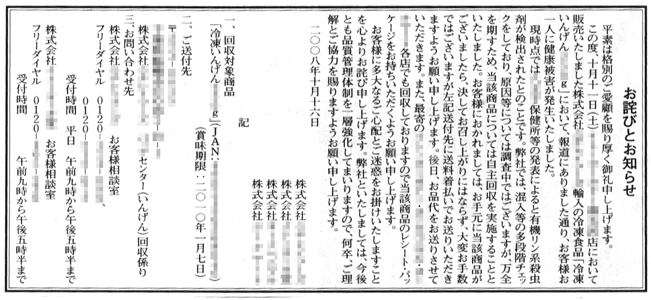 お詫びとお知らせ
平素は格別のご愛顧を賜り厚く御礼申し上げます。
この度、十月十一日(土) 店において
販売いたしました株式会社 輸入の冷凍食品「冷凍
いんげん g」において、報道にありました通り、お客様お
一人に健康被害が発生いたしました。
現時点では 保健所等の発表によると有機リン系殺虫
剤が検出されたとのことです。弊社では、混入等の多段階チェッ
クをしており、原因等については調査中でございますが、万全
を期すため、当該商品については自主回収を実施することと
いたしました。お客様におかれましては、お手元に当該商品が
ございましたら、決してお召し上がりにはならず、大変お手数
ではございますが左記送付先に送料着払いでお送りいただき
ますようお願い申し上げます。後日、お品代をお送りさせて
いただきます。また、最寄の ・
各店でも回収しておりますので当該商品のレシート・パッ
ケージをお持ちいただくようお願い申し上げます。
お客様に多大なるご心配とご迷惑をお掛けいたしますこと
を心よりお詫び申し上げます。弊社といたしましては、今後
とも品質管理体制を一層強化してまいりますので、何卒、ご理
解とご協力を賜りますようお願い申し上げます。
二〇〇八年十月十六日
株式会社
株式会社
株式会社
株式会社
記
一、回収対象商品
「冷凍いんげん g」【JAN:
(賞味期限:二〇一〇年一月七日)
二、ご送付先
〒
株式会社 センター(いんげん)回収係り
三、お問い合わせ先
株式会社 お客様相談室
フリーダイヤル 0120-
0120-
受付時間 平日 午前九時から午後五時半まで
株式会社 お客様相談室
フリーダイヤル 0120-
受付時間 午前九時から午後五時半まで